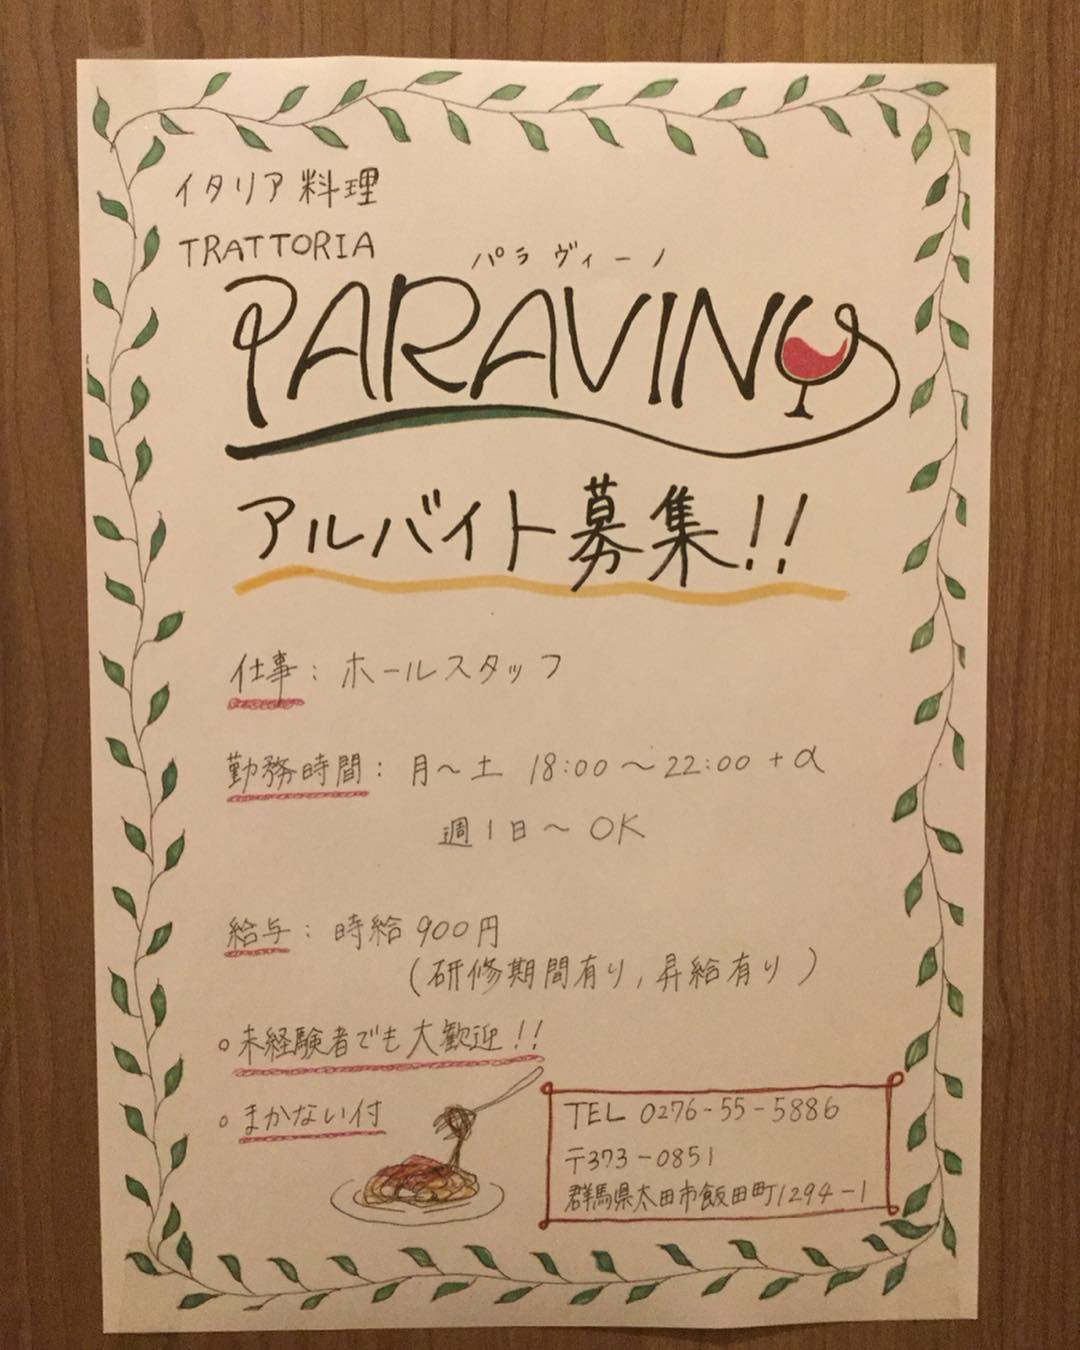 イタリア料理
TRATTORIA
パラヴィーノ
PARAVINO
アルバイト募集!!
仕事: ホールスタッフ
勤務時間: 月〜土 18:00〜22:00+α
週1日〜OK
給与: 時給900円
(研修期間有り, 昇給有り)
○未経験者でも大歓迎!!
○まかない付
TEL 0276-55-5886
〒373-0851
群馬県太田市飯田町1294-1